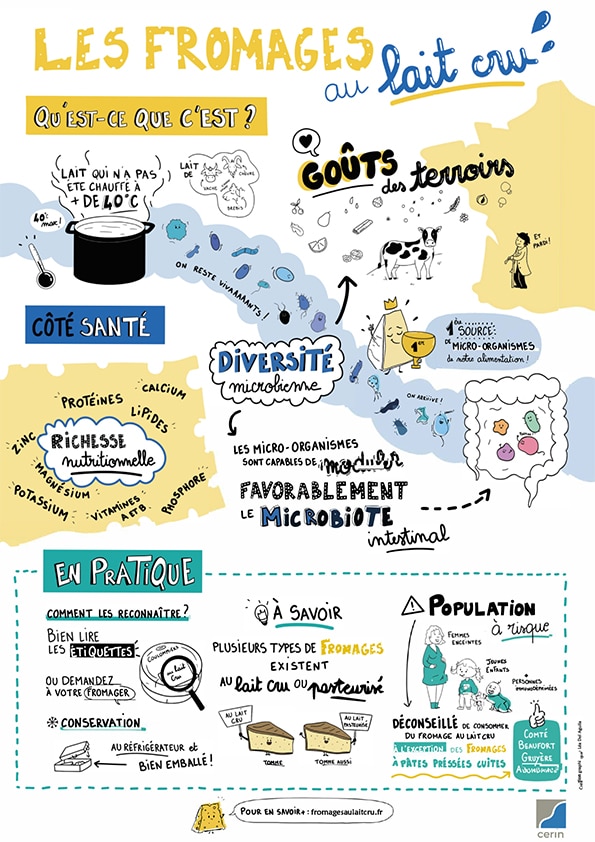 LES FROMAGES
au lait cru
QU'EST-CE QUE C'EST ?
LAIT QUI N'A PAS
ÉTÉ CHAUFFÉ À
+ DE 40°C
40° max!
LAIT
DE
VACHE
CHÈVRE
BREBIS
GOÛTS
des terroirs
ET
PARDI!
ON RESTE VIVAAAAANTS !
CÔTÉ SANTÉ
DIVERSITÉ
microbienne
1er
1ère
SOURCE
DE MICRO-ORGANISMES
de notre alimentation !
ON ARRIIIVE !
PROTÉINES
CALCIUM
LIPIDES
ZINC
RICHESSE
nutritionnelle
MAGNÉSIUM
POTASSIUM
VITAMINES
A ET B
PHOSPHORE
LES MICRO-ORGANISMES
SONT CAPABLES DE moduler
FAVORABLEMENT
LE MICROBIOTE
intestinal
EN PRATIQUE
COMMENT LES RECONNAÎTRE ?
BIEN LIRE
LES ÉTIQUETTES
OU DEMANDEZ
À VOTRE FROMAGER
COULOMMIERS
lait
Cru
CONSERVATION
AU RÉFRIGÉRATEUR et
BIEN EMBALLÉ !
À SAVOIR
PLUSIEURS TYPES DE FROMAGES
EXISTENT
AU lait cru OU pasteurisé
AU LAIT
CRU
TOMME
AU LAIT
PASTEURISÉ
TOMME AUSSI
POPULATION
à risque
FEMMES
ENCEINTES
JEUNES
ENFANTS
PERSONNES
IMMUNODÉPRIMÉES
DÉCONSEILLÉ DE CONSOMMER
DU FROMAGE AU LAIT CRU
À L'EXCEPTION DES FROMAGES
À PÂTES PRESSÉES CUITES
COMTÉ
BEAUFORT
GRUYÈRE
ABONDANCE
POUR EN SAVOIR + : fromagesaulaitcru.fr
cerin